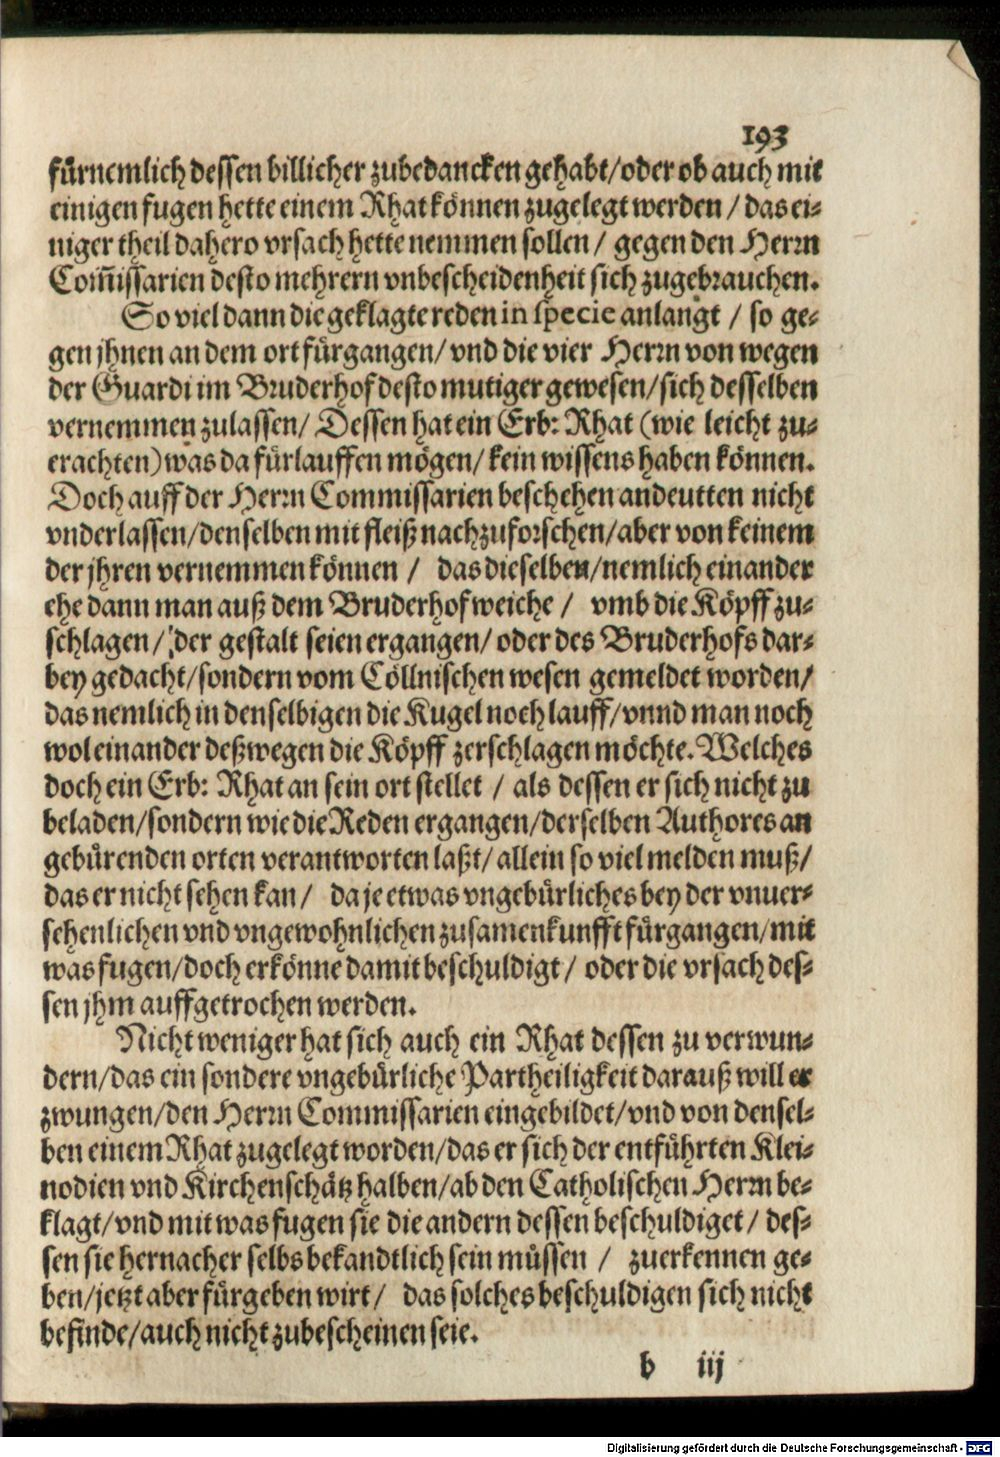 193
fürnemlich dessen billicher zubedancken gehabt/oder ob auch mit
einigen fugen hette einem Rhat können zugelegt werden / das ei-
niger theil dahero vrsach hette nemmen sollen / gegen den Herrn
Com̃issarien desto mehrern vnbescheidenheit sich zugebrauchen.
So viel dann die geklagte reden in specie anlangt / so ge-
gen jhnen an dem ort fürgangen/ vnd die vier Herrn von wegen
der Guardi im Bruderhof desto mutiger gewesen/sich desselben
vernemmen zulassen/ Dessen hat ein Erb: Rhat (wie leicht zu-
erachten) was da fürlauffen mögen/ kein wissens haben können.
Doch auff der Herrn Commissarien beschehen andeutten nicht
vnderlassen/denselben mit fleiß nachzuforschen/aber von keinem
der jhren vernemmen können / das dieselben/nemlich einander
ehe dann man auß dem Bruderhof weiche / vmb die Köpff zu-
schlagen/ der gestalt seien ergangen/ oder des Bruderhofs dar-
bey gedacht/sondern vom Cöllnischen wesen gemeldet worden/
das nemlich in denselbigen die Kugel noch lauff/vnnd man noch
wol einander deßwegen die Köpff zerschlagen möchte. Welches
doch ein Erb: Rhat an sein ort stellet / als dessen er sich nicht zu
beladen/sondern wie die Reden ergangen/derselben Authores an
gebürenden orten verantworten laßt/ allein so viel melden muß/
das er nicht sehen kan / da je etwas vngebürliches bey der vnuer-
sehenlichen vnd vngewohnlichen zusamenkunfft fürgangen/mit
was fugen/doch er könne damit beschuldigt / oder die vrsach des-
sen jhm auffgetrochen werden.
Nicht weniger hat sich auch ein Rhat dessen zu verwun-
dern/das ein sondere vngebürliche Partheiligkeit darauß will er
zwungen/den Herrn Commissarien eingebildet/vnd von densel-
ben einem Rhat zugelegt worden/das er sich der entführten Klei-
nodien vnd Kirchenschätz halben/ab den Catholischen Herrn be-
klagt/vnd mit was fugen sie die andern dessen beschuldiget / des-
sen sie hernacher selbs bekandtlich sein müssen / zuerkennen ge-
ben/jetzt aber fürgeben wirt / das solches beschuldigen sich nicht
befinde/auch nicht zubescheinen seie.
b iij
Digitalisierung gefördert durch die Deutsche Forschungsgemeinschaft - DFG